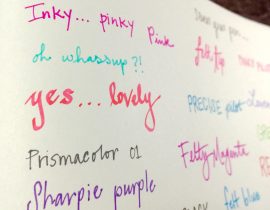 Inky... pinky Pink
oh whassup?!
yes... lovely
Prismacolor 01
Sharpie purple
felt tip
PRECISE pilot
Felty Magenta
felt blue